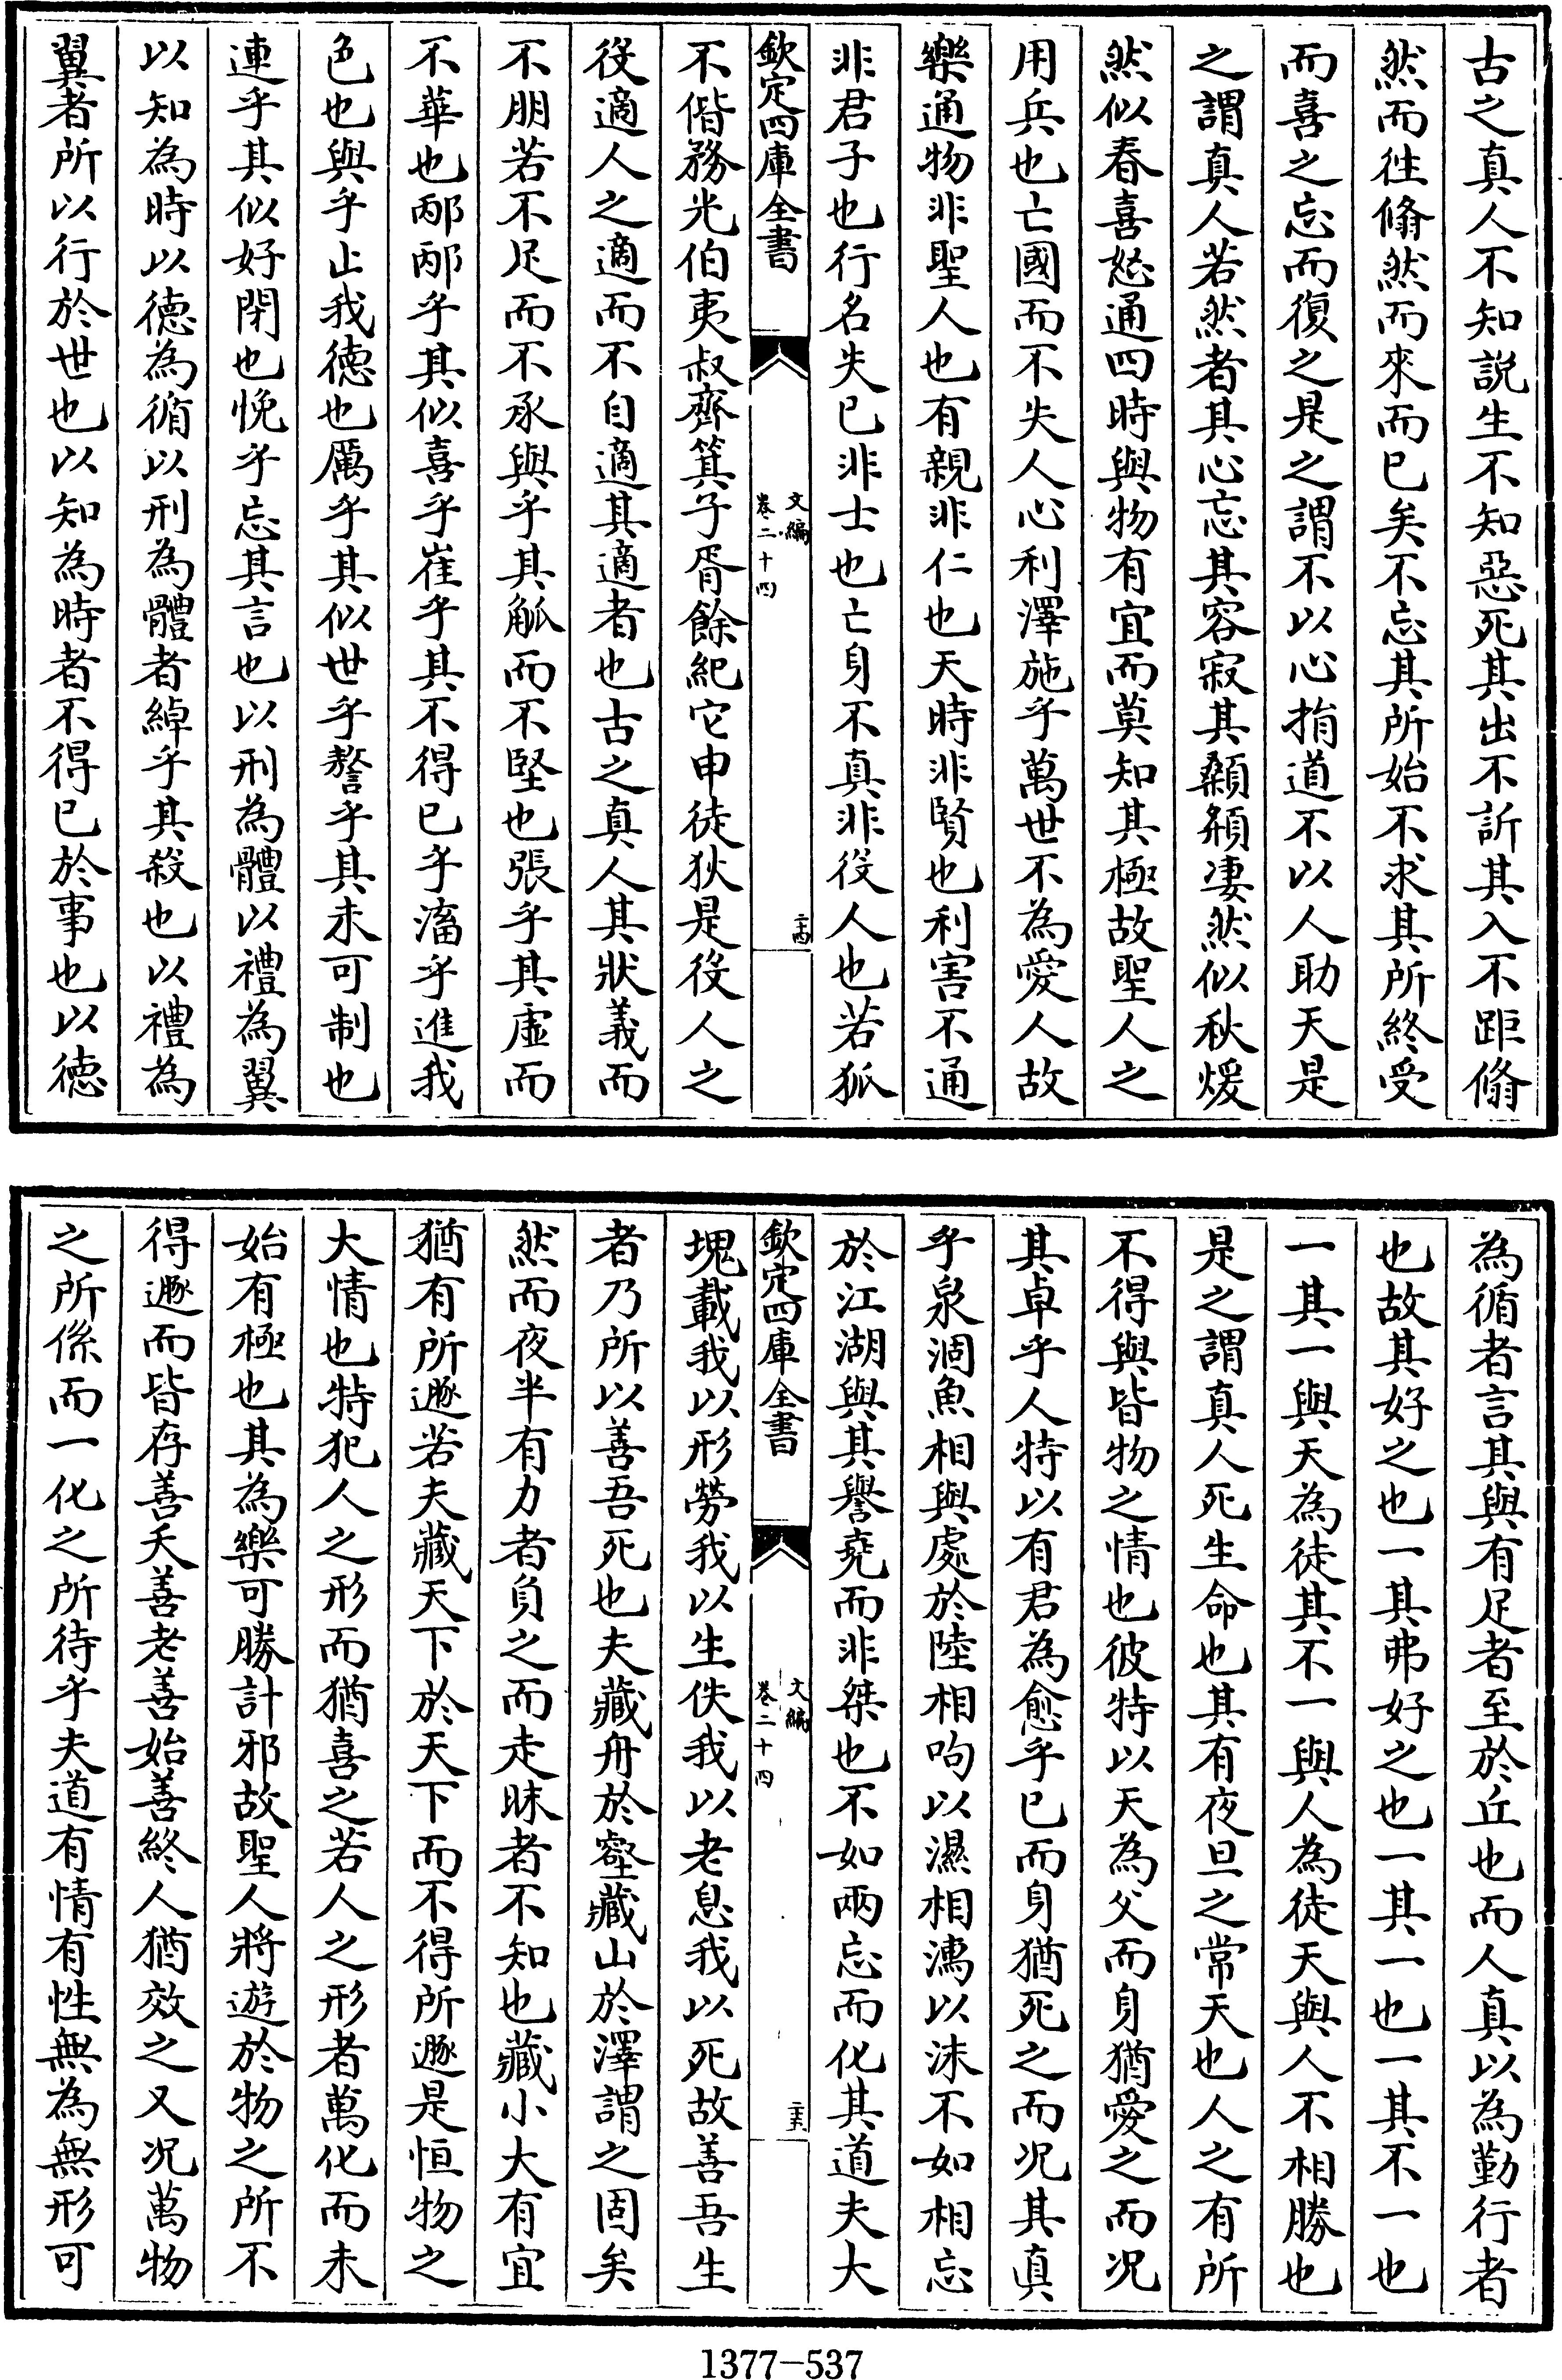 古之真人不知説生不知惡死其出不訢其入不距翛
然而往翛然而來而已矣不忘其所始不求其所終受
而喜之忘而復之是之謂不以心揖道不以人助天是
之謂真人若然者其心忘其容寂其顙頯凄然似秋煖
然似春喜怒通四時與物有宜而莫知其極故聖人之
用兵也亡國而不失人心利澤施乎萬世不為愛人故
樂通物非聖人也有親非仁也天時非賢也利害不通
非君子也行名失已非士也亡身不真非役人也若狐
欽定四庫全書
文編
卷二十四
不偕務光伯夷叔齊箕子胥餘紀它申徒狄是役人之
役適人之適而不自適其適者也古之真人其狀義而
不朋若不足而不承與乎其觚而不堅也張乎其虛而
不華也邴邴乎其似喜乎崔乎其不得已乎滀乎進我
色也與乎止我德也厲乎其似世乎謷乎其未可制也
連乎其似好閉也悗乎忘其言也以刑為體以禮為翼
以知為時以德為循以刑為體者綽乎其殺也以禮為
翼者所以行於世也以知為時者不得已於事也以德
為循者言其與有足者至於丘也而人真以為勤行者
也故其好之也一其弗好之也一其一也一其不一也
一其一與天為徒其不一與人為徒天與人不相勝也
是之謂真人死生命也其有夜旦之常天也人之有所
不得與皆物之情也彼特以天為父而身猶愛之而况
其卓乎人特以有君為愈乎已而身猶死之而况其真
乎泉涸魚相與處於陸相呴以濕相濡以沫不如相忘
於江湖與其譽堯而非桀也不如兩忘而化其道夫大
欽定四庫全書
文編
卷二十四
塊載我以形勞我以生佚我以老息我以死故善吾生
者乃所以善吾死也夫藏舟於壑藏山於澤謂之固矣
然而夜半有力者負之而走昧者不知也藏小大有宜
猶有所遯若夫藏天下於天下而不得所遯是恒物之
大情也特犯人之形而猶喜之若人之形者萬化而未
始有極也其為樂可勝計邪故聖人將遊於物之所不
得遯而皆存善夭善老善始善終人猶效之又况萬物
之所係而一化之所待乎夫道有情有性無為無形可
1377-537